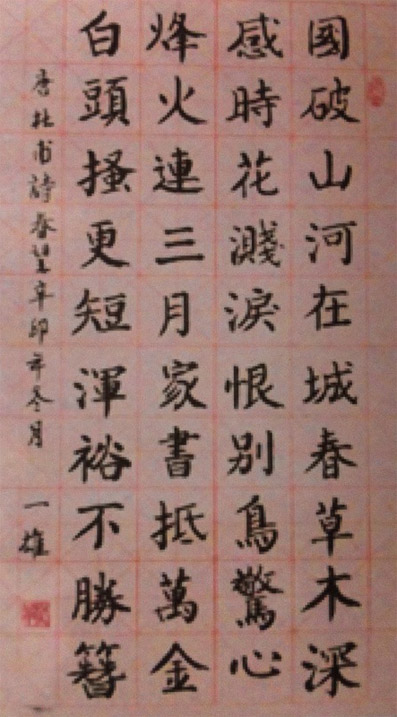 國破山河在城春草木深
感時花濺淚恨別鳥驚心
烽火連三月家書抵萬金
白頭搔更短渾裕不勝簪
唐杜甫詩春望辛卯年冬月
一雄